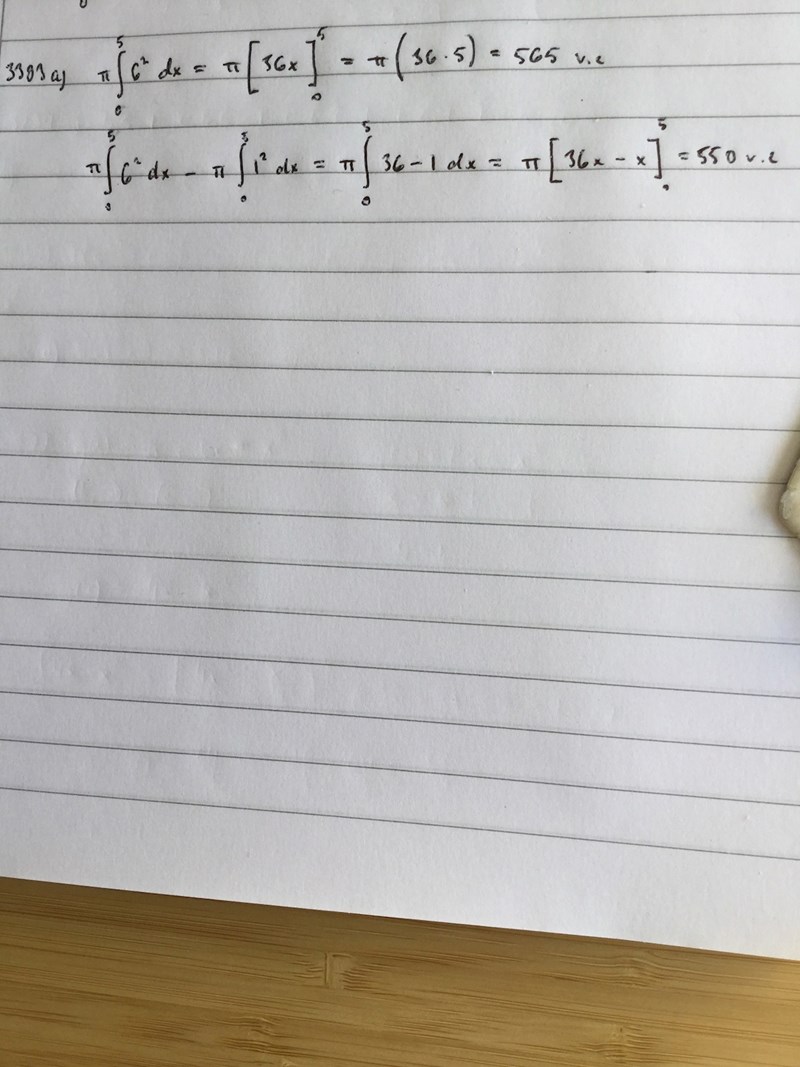 3303 a) π∫₀⁵ 6² dx = π[36x]₀⁵ = π(36·5) = 565 v.e
π∫₀⁵ 6² dx − π∫₀⁵ 1² dx = π∫₀⁵ 36−1 dx = π[36x − x]₀⁵ = 550 v.e